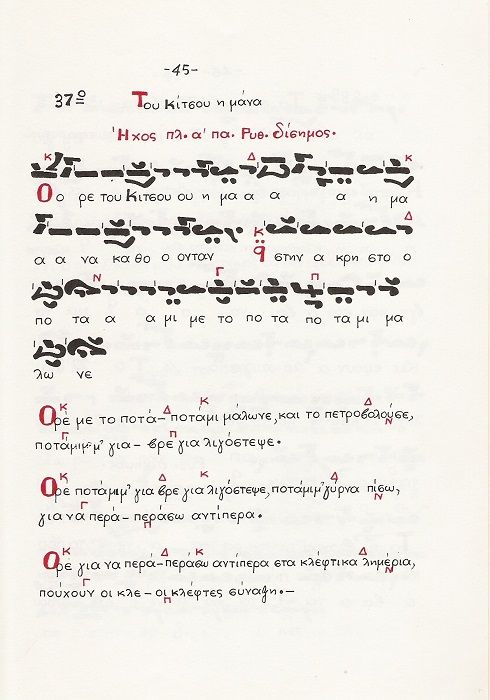 -45-
37ο Του Κίτσου η μάνα
Ήχος πλ. α' πα. Ρυθ. δίσημος.
Κ Δ Κ
Ο ο ρε του Κιτσου ου η μα α α α η μα
Κ Δ
α α να κα θο ο ονταν q στην α κρη στο ο
Ν Γ Π
πο τα α α μι με το πο τα πο τα μι μα
λω νε
Κ Δ Κ Δ
Ορέ με το ποτά- ποτάμι μάλωνε, και το πετροβολούσε,
Γ Π Ν
ποτάμιμ' μ' για- βρε για λιγόστεψε.
Κ Δ Κ Δ
Ορε ποτάμιμ' για βρε για λιγόστεψε, ποτάμιμ' γύρνα πίσω,
Γ Π Ν
για να περά- περάσω αντίπερα.
Κ Δ Κ Δ
Ορε για να περά-περάσω αντίπερα στα κλέφτικα λημέρια,
Γ Π Ν
πούχουν οι κλε- οι κλέφτες σύναξη.-